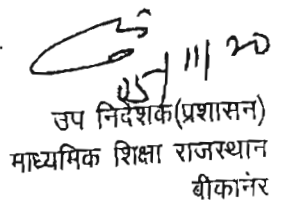 उप निदेशक(प्रशासन)
माध्यमिक शिक्षा राजस्थान
बीकानेर